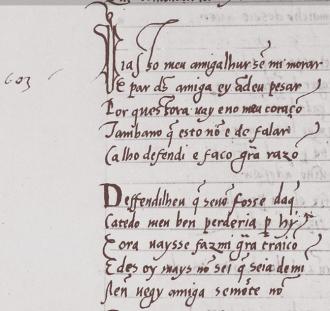 603
Pias sso meu amigalhur sē mi morar
E par ds̄ amiga ey endeu pesar
Por ques ora uay eno meu coraçō
Tambano q̄ esto nō e de falar
Ca lho defendi e faco grā razō
Deffendilheu q̄ senō fosse daq̄
Ca todo meu ben perderia p hy
E ora uaysse fazmi grā traiçō
E des oy mays nō sei q̄ seia demi
nen uegy amiga semōte nō